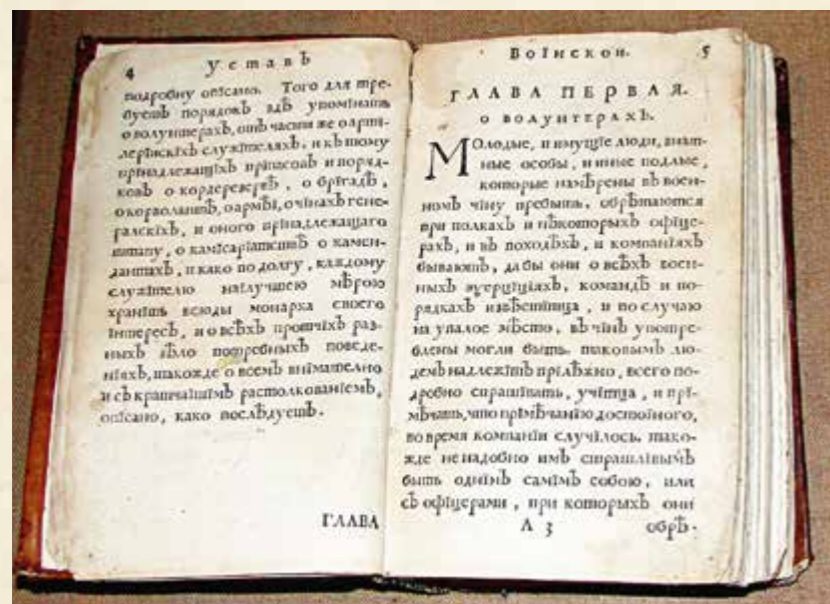 4 Уставъ
подробну опісано. Того для тре-
буетъ порядокъ здѣ упомінать
о волунтерахъ, отъ части же о арти-
лерїискіхъ служітеляхъ, и къ тому
прінадлежащіхъ пріпасовъ и поряд-
ковъ о кордерезервѣ, о брігадѣ,
о корволантѣ, о армѣі, о чінахъ гене-
ралскіхъ, и оного прінадлежащаго
штапу, о камісаріатствѣ о камен-
дантахъ, и како по долгу, каждому
служітелю наілучшею мѣрою
хранітъ всюды монарха своего
інтересъ, и о всѣхъ протчіхъ раз-
ныхъ зѣло потребныхъ поведе-
ніяхъ, такожде о всемъ внимателно
и съ кратчаішімъ растолкованіемъ,
опісано, како послѣдуетъ.
ГЛАВА
Воінскои. 5
ГЛАВА ПЕРВАЯ.
о волунтерахъ.
Молодые, и имущіе люди, знат-
ные особы, и инные подлые,
которые намѣрены въ воен-
номъ чіну пребыть, обрѣтаются
при полкахъ и нѣкоторыхъ офіце-
рахъ, и въ походѣхъ, и компаніяхъ
бываютъ, дабы они о всѣхъ воен-
ныхъ эѯерціціяхъ, командѣ и по-
рядкахъ извѣстітца, и по случаю
на упалое мѣсто, въ чінъ употре-
блены могли быть. таковымъ лю-
демъ надлежітъ прілѣжно, всего по-
дробно спрашівать, учітца, и прі-
мѣчать, что прімѣчанію достоіного,
во время компаніи случілось. тако-
жде ненадобно имъ страшлівымъ
быть однімъ самімъ собою, или
съ офіцерами, при которыхъ они
А 3 обрѣ-